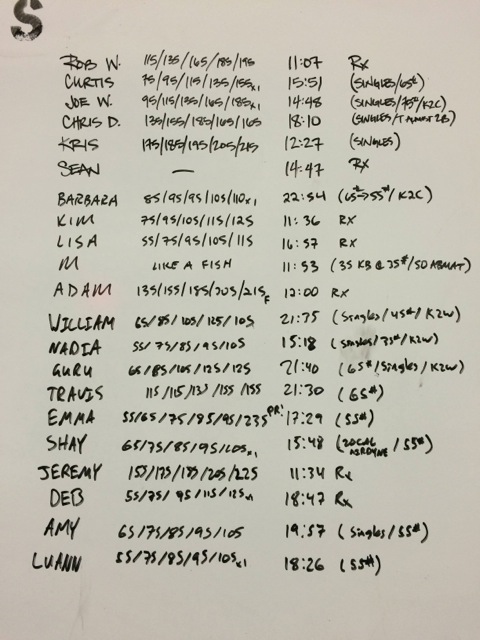 S
ROB W. 115/135/165/185/195 11:07 Rx
CURTIS 75/95/115/135/155x1 15:51 (SINGLES/65#)
JOE W. 95/115/135/165/185x1 14:48 (SINGLES/75#/K2C)
CHRIS D. 135/155/185/165/165 18:10 (SINGLES/
KRIS 175/185/195/205/215 12:27 (SINGLES)
SEAN — 14:47 Rx
BARBARA 85/95/95/105/110x1 22:54 (65#→55#/K2C)
KIM 75/95/105/115/125 11:36 RX
LISA 55/75/95/105/115 16:57 RX
M LIKE A FISH 11:53 (35 KB @ 35#/50 ABMAT)
ADAM 135/155/185/205/215F 12:00 RX
WILLIAM 65/85/105/125/105 21:35 (Singles/45#/K2W)
NADIA 55/75/85/95/105 15:18 (singles/35#/K2W)
GURU 65/85/105/125/125 21:40 (65#/Singles/K2W)
TRAVIS 115/115/135/155/155 21:30 (65#)
EMMA 55/65/75/85/95/235 PR! 17:29 (55#)
SHAY 65/75/85/95/105x1 15:48 (20CAL AIRDYNE/55#)
JEREMY 155/175/185/205/225 11:34 Rx
DEB 55/75/95/115/125x1 18:47 Rx
AMY 65/75/85/95/105 19:57 (Singles/55#)
LUANN 55/75/85/95/105x1 18:26 (55#)